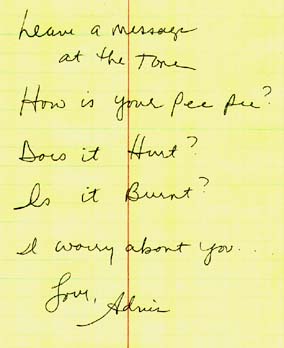 Leave a message
at the Tone
How is your Pee pee?
Does it Hurt?
Is it Burnt?
I worry about you...
Love,